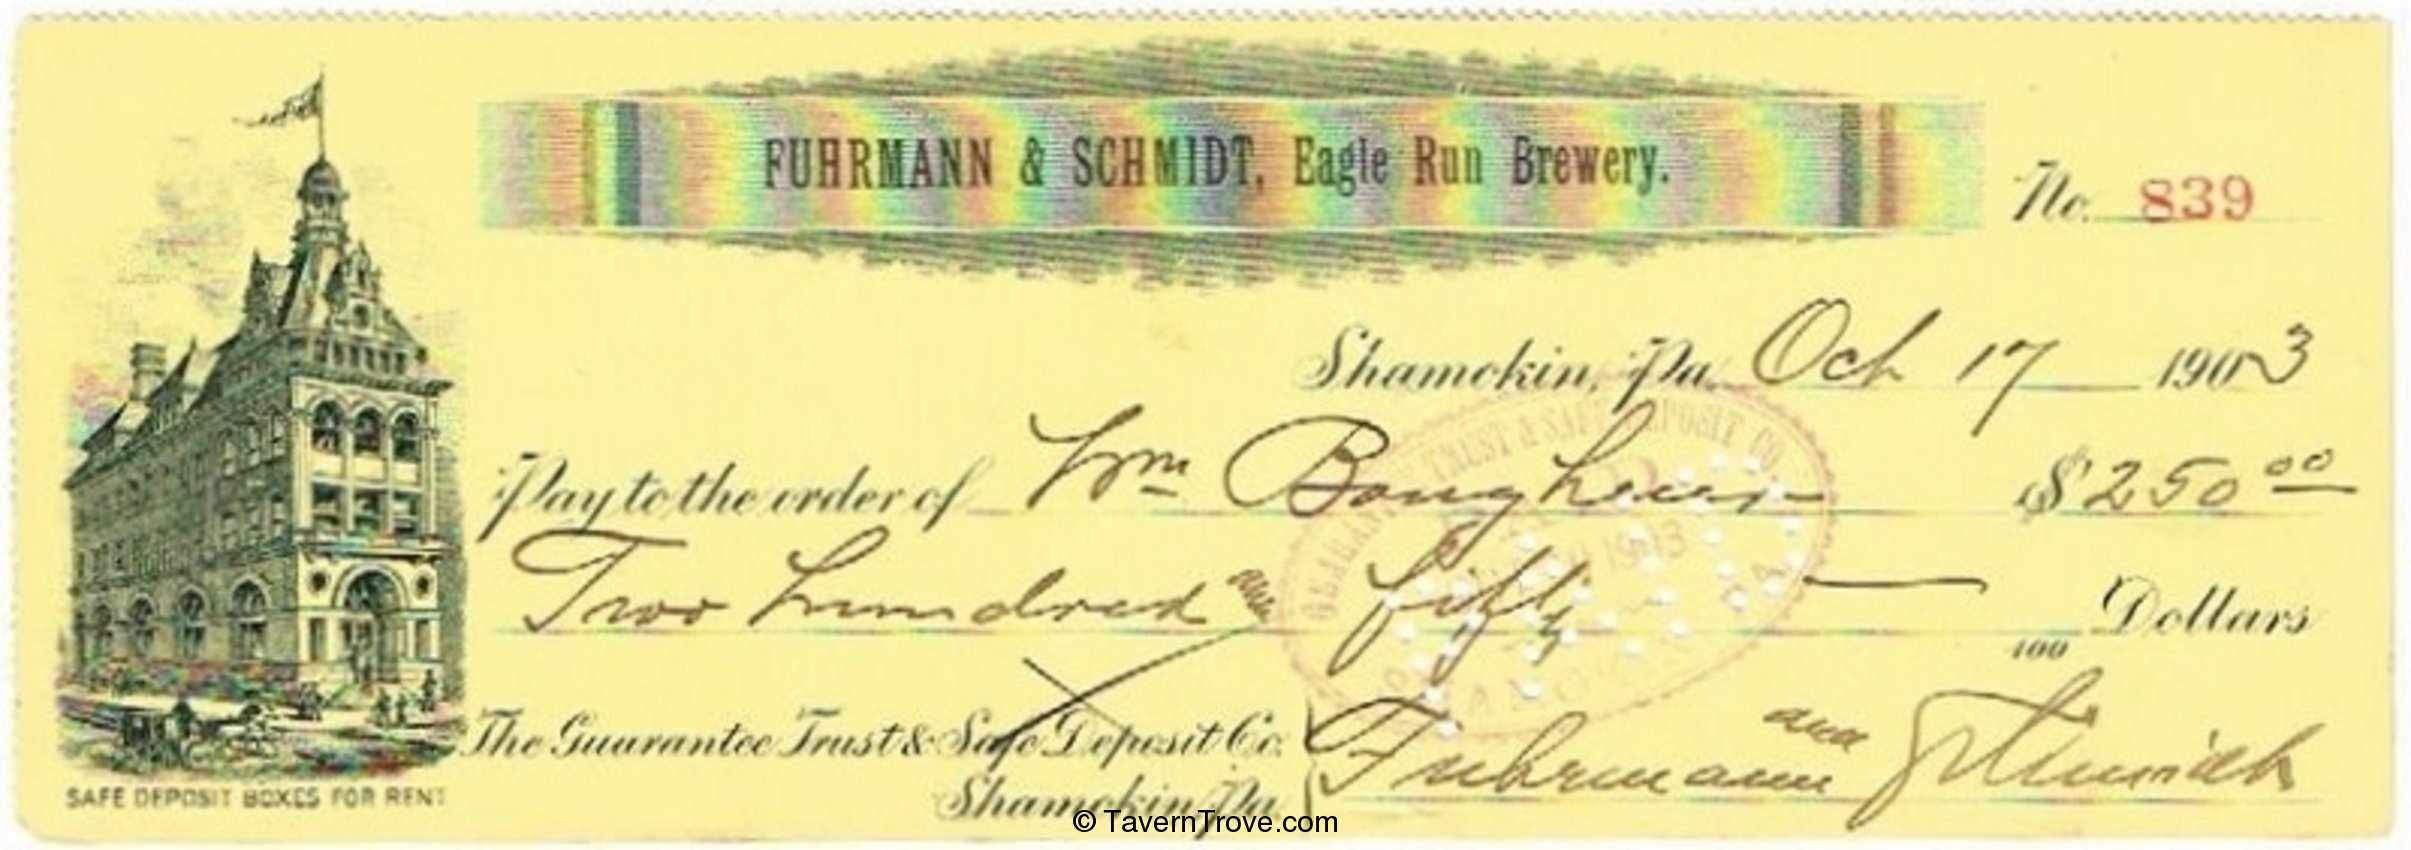 FUHRMANN & SCHMIDT, Eagle Run Brewery.
No. 839
Shamokin, Pa. Oct 17 1903
Pay to the order of Wm $250 00
Two hundred and fifty /100 Dollars
GUARANTEE TRUST & SAFE DEPOSIT CO.
1903
The Guarantee Trust & Safe Deposit Co.
Shamokin, Pa.
Fuhrmann and Schmidt
SAFE DEPOSIT BOXES FOR RENT
© TavernTrove.com